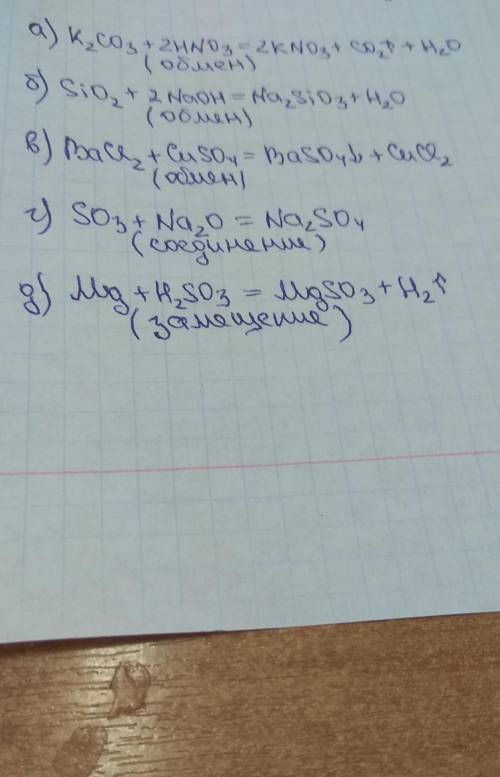 а) K₂CO₃ + 2HNO₃ = 2KNO₃ + CO₂↑ + H₂O
(обмен)
б) SiO₂ + 2NaOH = Na₂SiO₃ + H₂O
(обмен)
в) BaCl₂ + CuSO₄ = BaSO₄↓ + CuCl₂
(обмен)
г) SO₃ + Na₂O = Na₂SO₄
(соединение)
д) Mg + H₂SO₃ = MgSO₃ + H₂↑
(замещение)